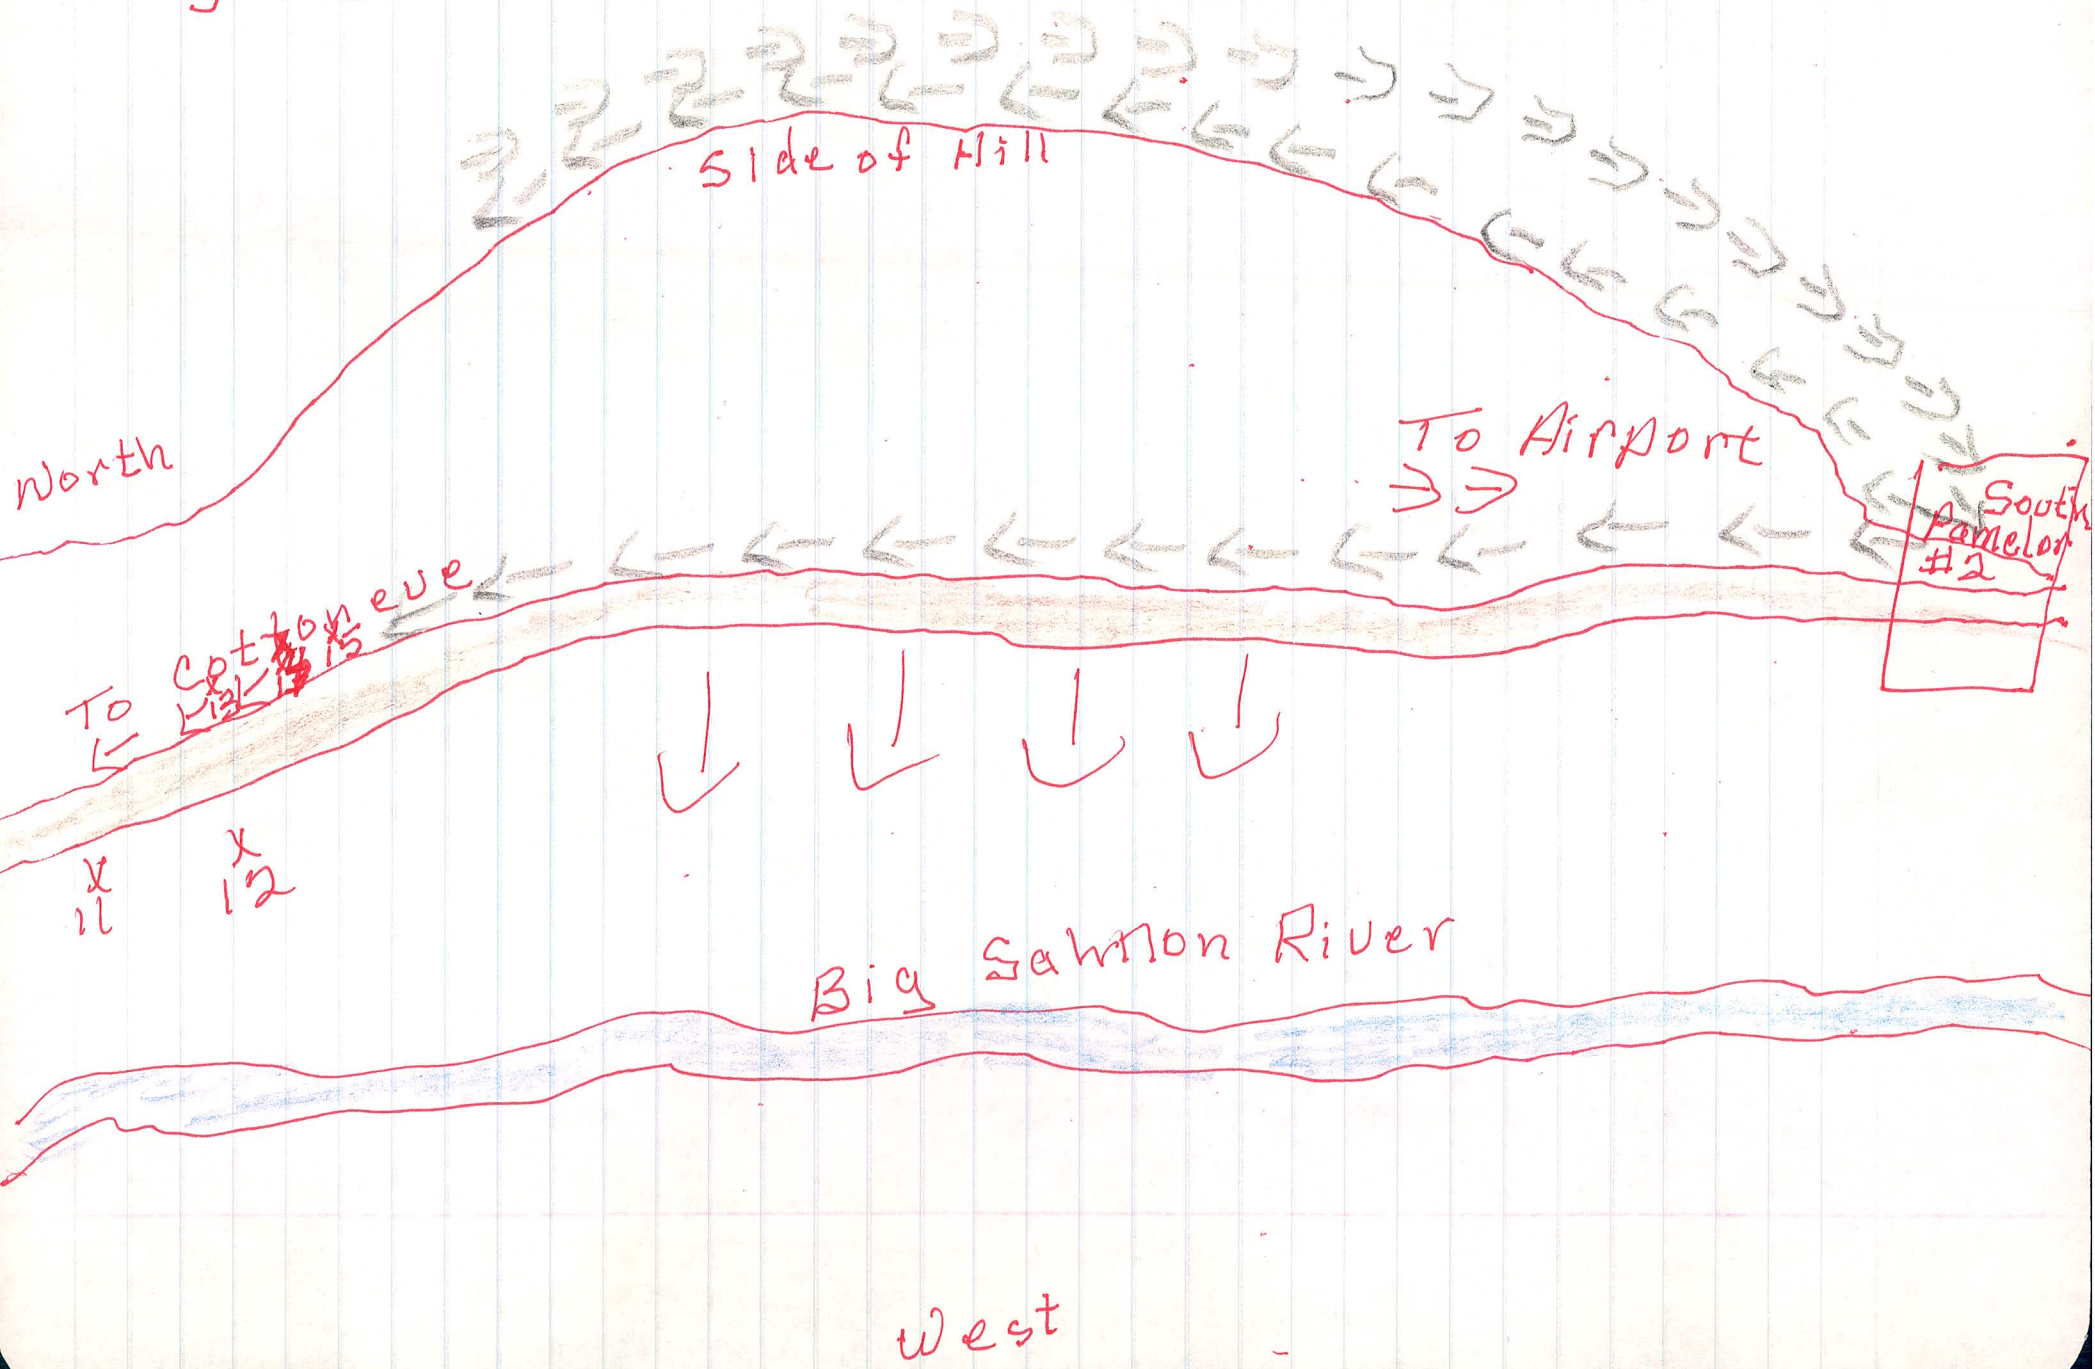 Side of Hill
To Airport
North
South
Pamelon
#2
To Cottoneve
13
15
x
11
x
12
Big Salmon River
West